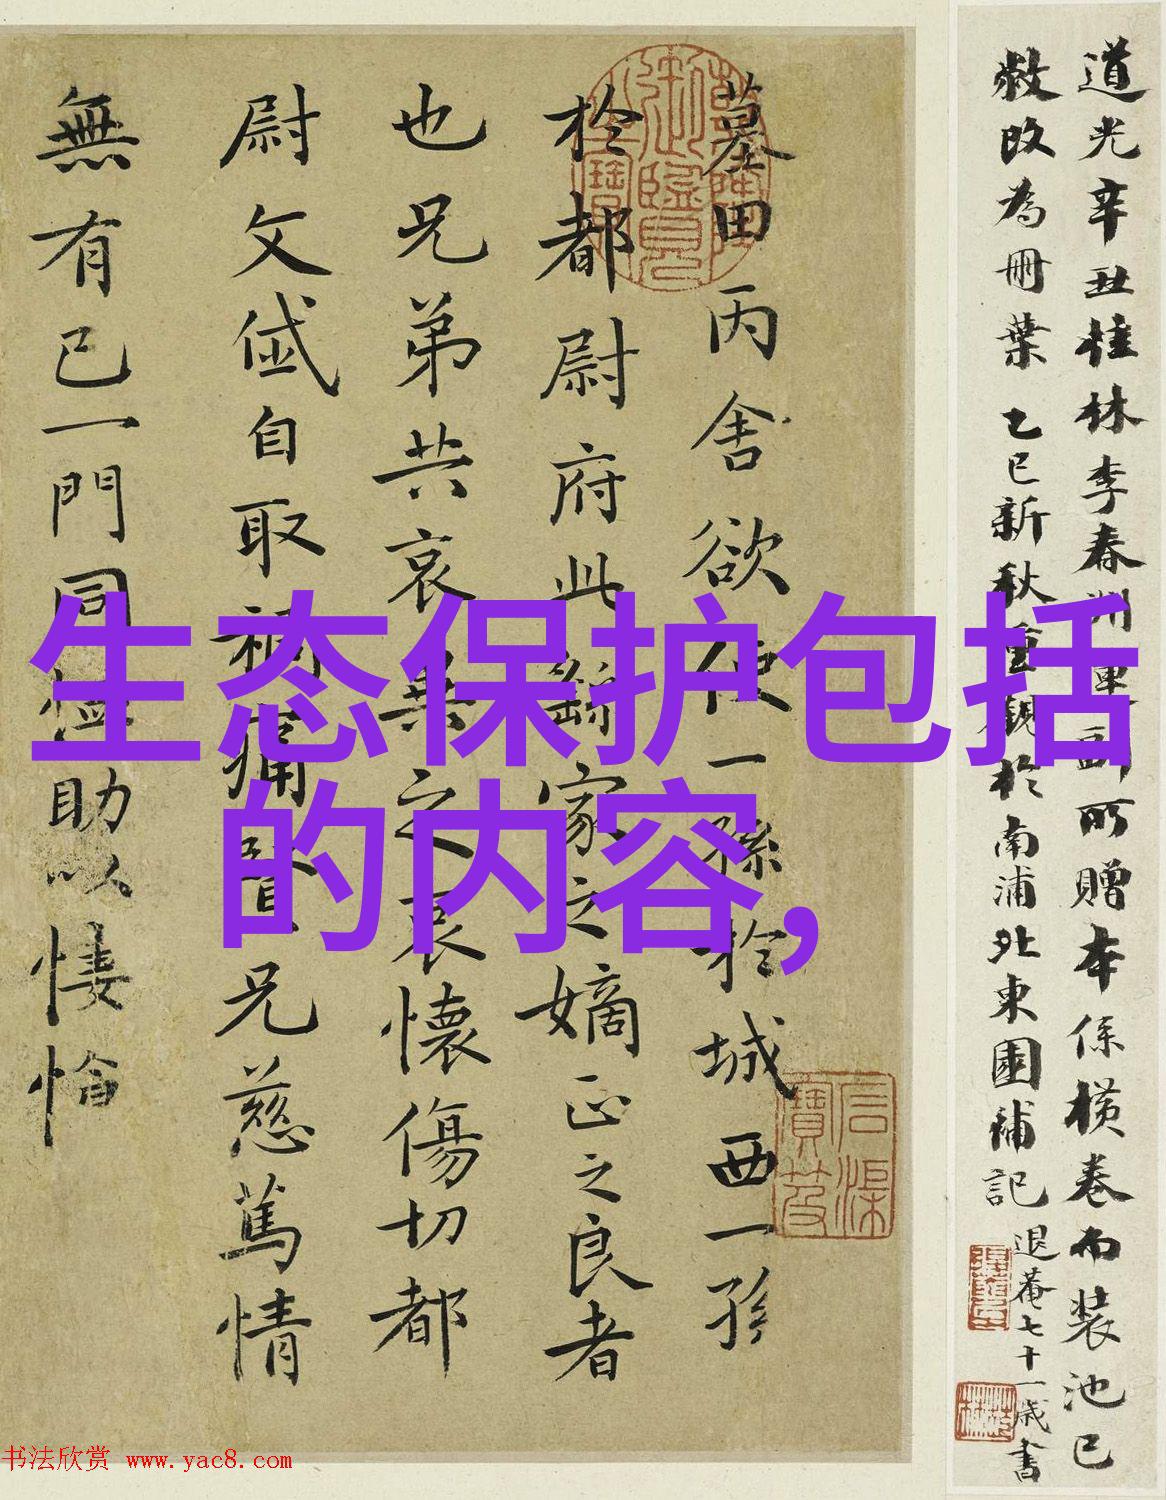 道光辛丑桂林李春洲軍副所贈本係橫卷而裝池已
敝改為冊葉乙巳新秋重觀於南浦北東園補記
退菴七十一歲書
墓田丙舍欲使一孫於城西一孫
於都尉府此繇家之嫡正之良者
也兄弟共哀異之哀懷傷切都
尉文岱自取禍痛賢兄慈篤情
無有已一門同恤助以悽愴
御覽
生态保护包括
的内容,
书法欣赏 www.yac8.com